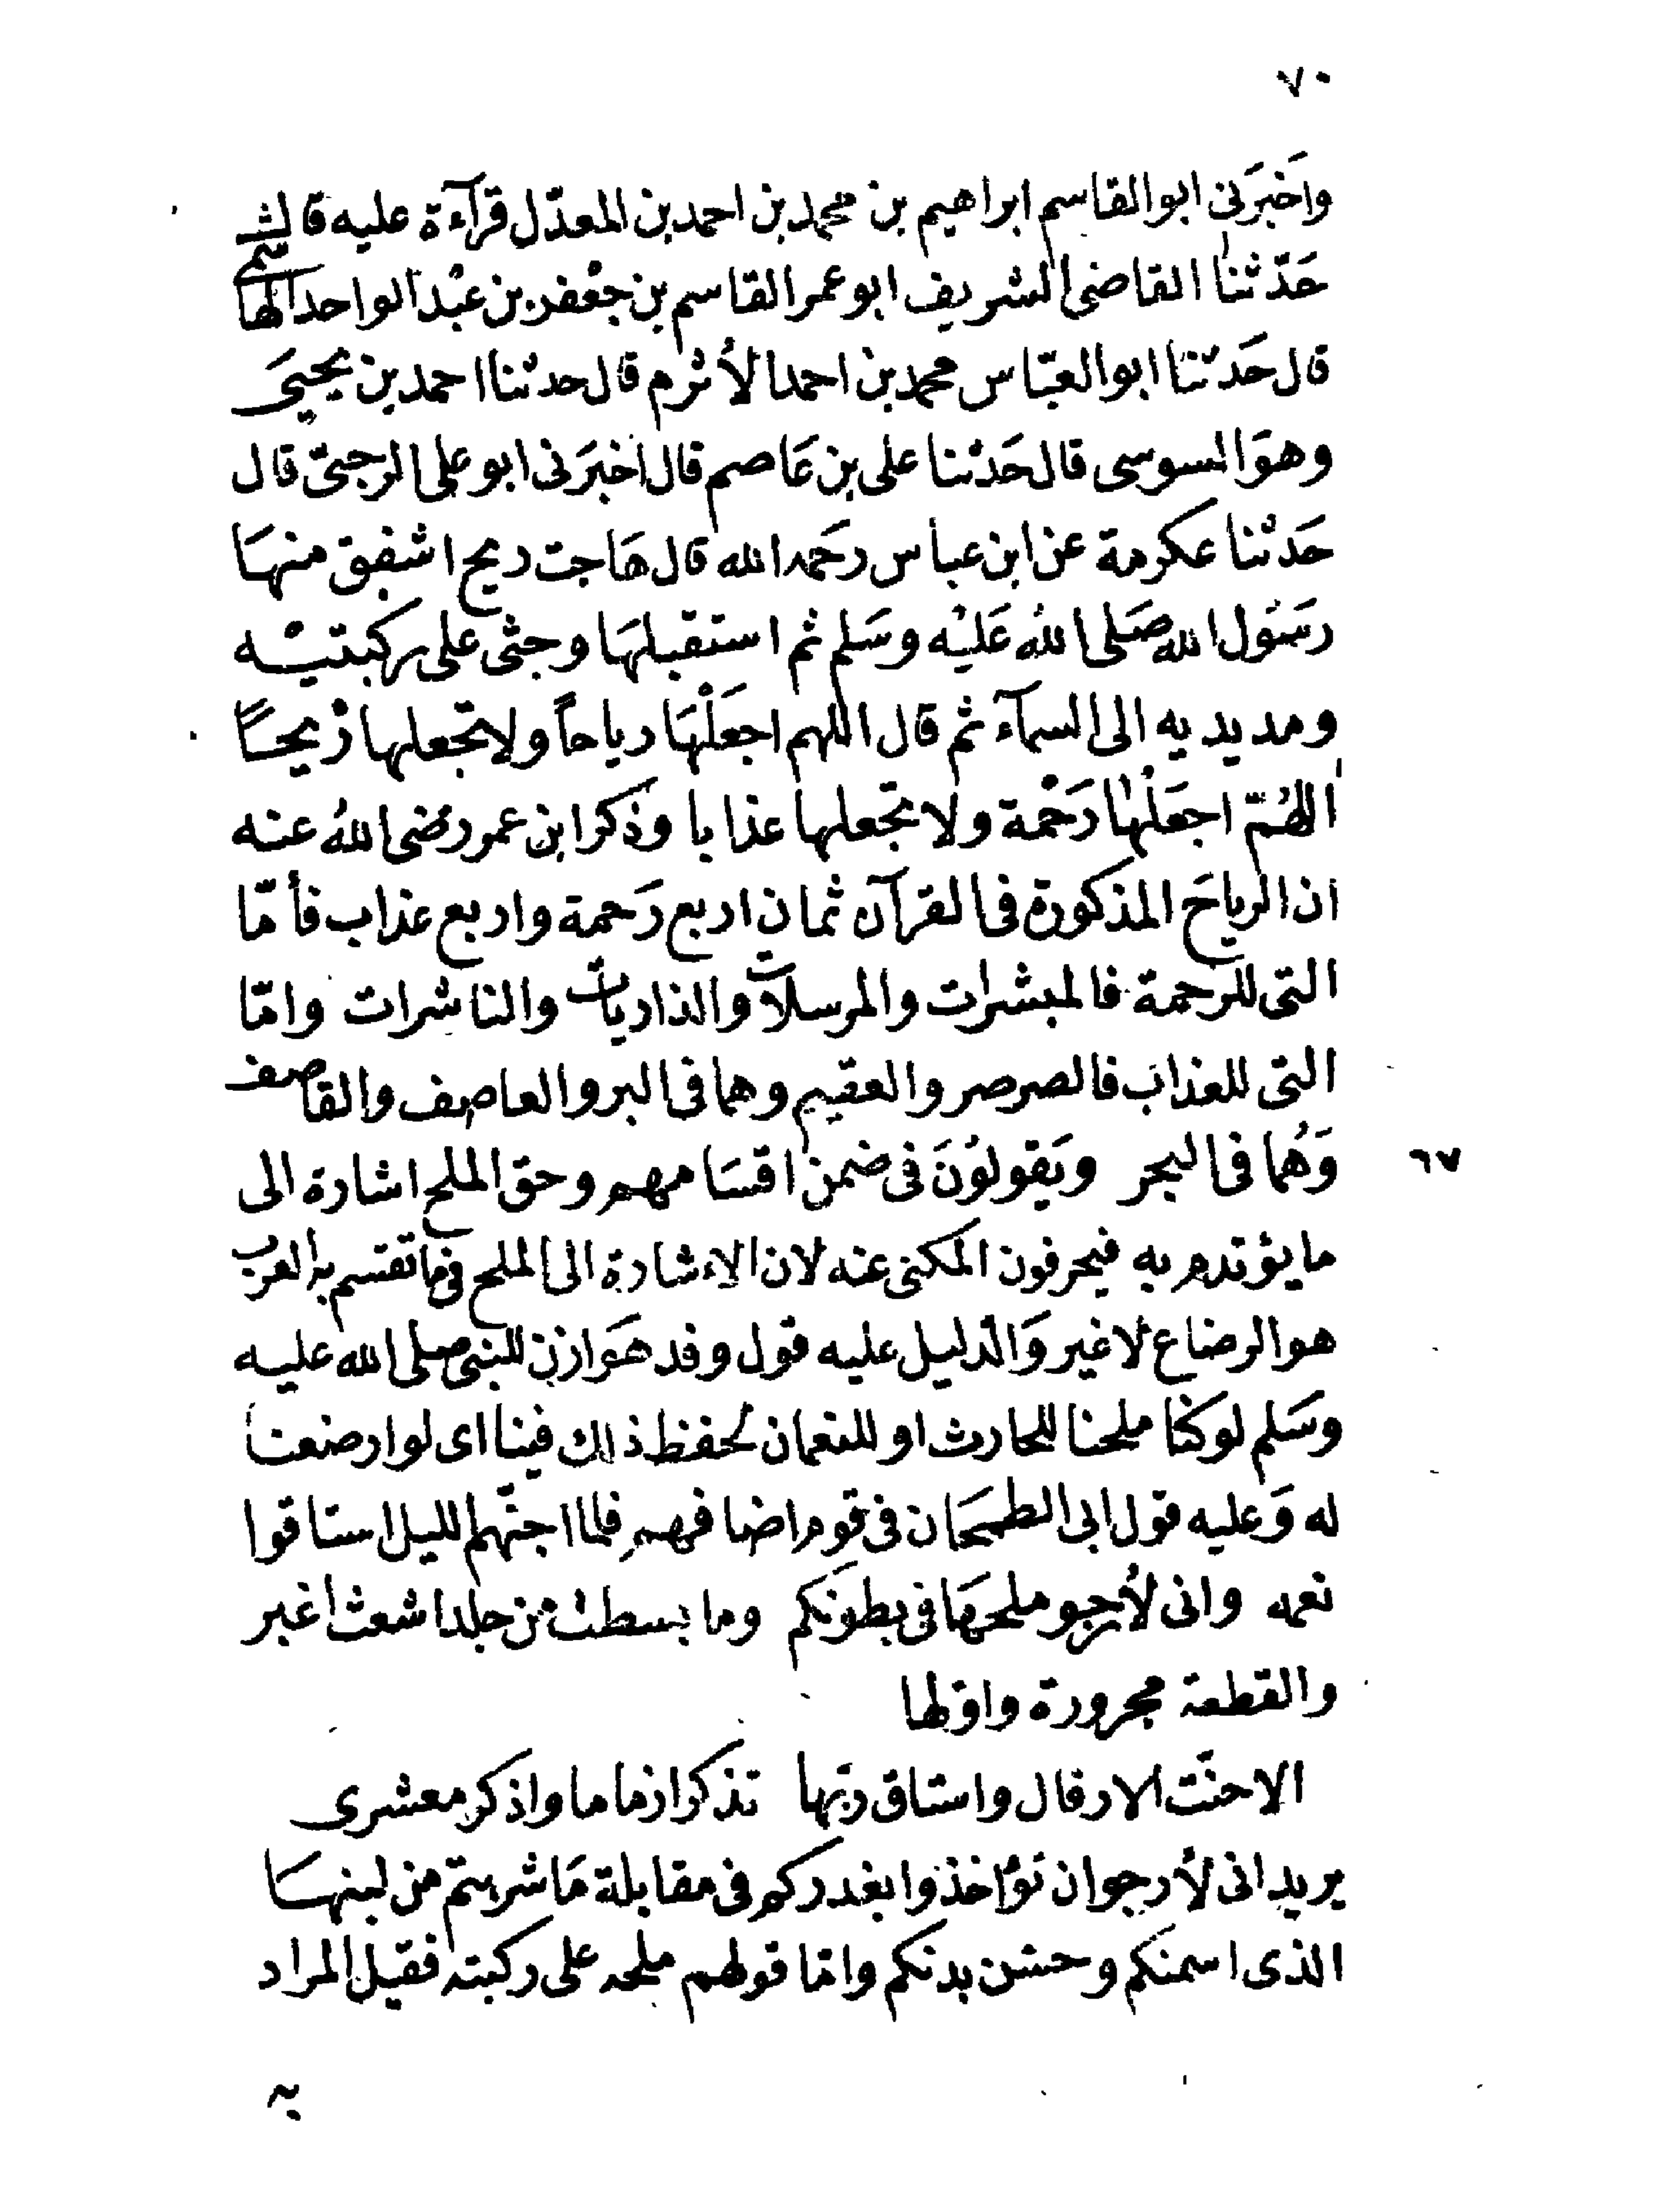 ٧٠
وَاَخبَرَنى ابوالقاسم ابراهيم بن محمد بن احمد بن المعدّل قرآءة عليه قال
حَدّثنا القاضى الشريف ابوعمر القاسم بن جعْفر بن عبْد الواحد الهاشمى
قال حَدثنا ابوالعبّاس محمد بن احمد الأثرم قال حدثنا احمد بن يحيىَ
وهوَ السوسى قال حَدثنا على بن عَاصم قال اخبرَنى ابوعلى الرحبىّ قال
حَدثنا عكرمة عن ابن عباس رحَمه الله قال هَاجت ريح اشفق منهَا
رسَول الله صَلى اللهُ عَليْه وسَلم ثم استقبلهَا وجثى على ركبتيْه
ومد يديه الى السمآء ثم قال اللهم اجعَلْهَا رياحاً ولا تجعلها رْيحاً
اللهُمّ اجعَلْهَا رَحْمة ولا تجعلها عذابا وذكر ابن عمر رضى اللهُ عنه
ان الرياحَ المذكورة فى القرآن ثمان اربع رَحمة واربع عذاب فأمّا
التى للرحمة فالمبشرات والمرسلات والذاريات والناشرات وامّا
التى للعذاب فالصرصر والعقيم وهما فى البر والعاصف والقاصف
٦٧ وَهُما فى البحر ويَقولوُنَ فى ضمن اقسَامهم وحق الملح اشارة الى
ما يؤتدم به فيحرفون المكنى عنه لان الاءشارة الى الملح فيما تقسم به العرب
هو الرضاع لا غير وَالدليل عليه قول وفد هَوازن للنبى صلى الله عليه
وسَلم لوكنا ملحنا للحارث او للنعمان لحفظ ذلك فينا اى لو ارضعنا
له وَعليه قول ابى الطمحَان فى قوم اضافهم فلما اجنّهم الليل استاقوا
نعمه وانى لأرجو ملحهَا فى بطونكم وما بسطت من جلد اشعث اغبر
والقطعة مجرورة واوّلها
الاحنّت الارقال واستاق ربّها تذكر ازماما واذكر معشرى
يريد انى لأرجو ان تؤاخذوا بغدركم فى مقابلة مَا شربتم من لبنهَا
الذى اسمنكم وحسّن بدنكم وامّا قولهم ملحه على ركبته فقيل المراد
به